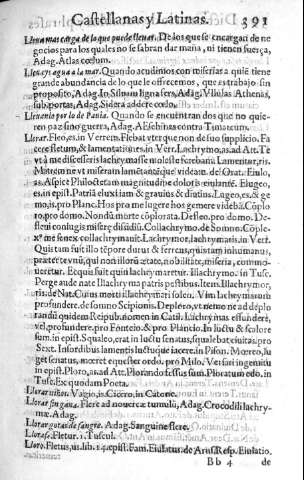 Castellanas y Latinas. 391
Llena mas carga de lo que puede llevar. De los que se encargan de ne
gocios para los quales no se sabran dar maña, ni tienen fuerça,
Adag. Atlas cœlum.
Lleuays agua a la mar. Quando acudimos con miserias a quiē tiene
grande abundancia de lo que le ofrecemos, que es trabajo sin
proposito, Adag. In Siluam ligna fers, Adag. Vlulas Athenas,
sub portas, Adag. Sidera addere cœlo.
Lleuenlo por lo de Pauia. Quando se encuentran dos que no quie-
ren paz sino guerra, Adag. AEschinas contra Timarcum.
Llorar. Fleo, as, in Verrem. Flebat vterque non de suo supplicio. Fa
cere fletum, & lamentationes, in Verr. Lachrymo, as, ad Att. Te
Mittem me vt miseram lamētanda
as. Aspice Philoctetam magnitudine doloris eiulante. Elugeo,
es, in epist. Patria eluxi iam & grauius & diutius. Lugeo, es, & ge
mo, is, pro Planc. Hos pro me lugere hos gemere videbā. Cōplo
ro, pro domo. Nondū morte cōplorata. Defleo, pro domo. De-
fleui coniugis miserę disidiū. Collachrymo, de Somno. Cōple-
xꝰ me senex collachrymauit. Lachrymor, lachrymaris, in Verr.
Quis tam fuit illo tēpore durus & ferreus, quis tam inhumanus,
præter te vnū, qui non illorū ætate, nobilitate, miseria, commo-
ueretur. Ecquis fuit quin lachrymaretur. Illachrymo, in Tusc.
Perge aude nate Illachryma patris pestibus. Item. Illachrymor,
ris, de Nat. Cuius morti illachrymari soleo. Vim lachrymarum
profundere, de somno Scipionis. Depleo, vt nemo ne ad deplo
randū quidem Reipub. nomen in Catil. Lachrymas effundere,
vel, profundere, pro Fonteio, & pro Plancio. In luctu & squalore
sum, in epist. Squaleo, erat in luctu senatus, squalebat ciuitas, pro
Sext. Infordibus lamentis luctuque iacere, in Pison. Mœreo, lu
get senatus, mœret equester ordo, pro Milo. Versari in gemitu
in epist. Ploro, as, ad Att. Plorando fessus sum. Ploratum edo, in
Tusc. Ex quodam Poeta.
Llorar niños. Vagio, is, Cicero, in Catone.
Llorar sin gana. Flere ad nouercæ tumulū, Adag. Crocodili lachry-
mæ. Adag.
Llorar gotas de sangre. Adag. Sanguine flere.
Lloroso. Fletur. 1. Tuscul.
Lloro. Fletus, us, lib. 14. epist. Fam. Eiulatus, de Arusp. Resp. Eiulatio
Bb 4 de